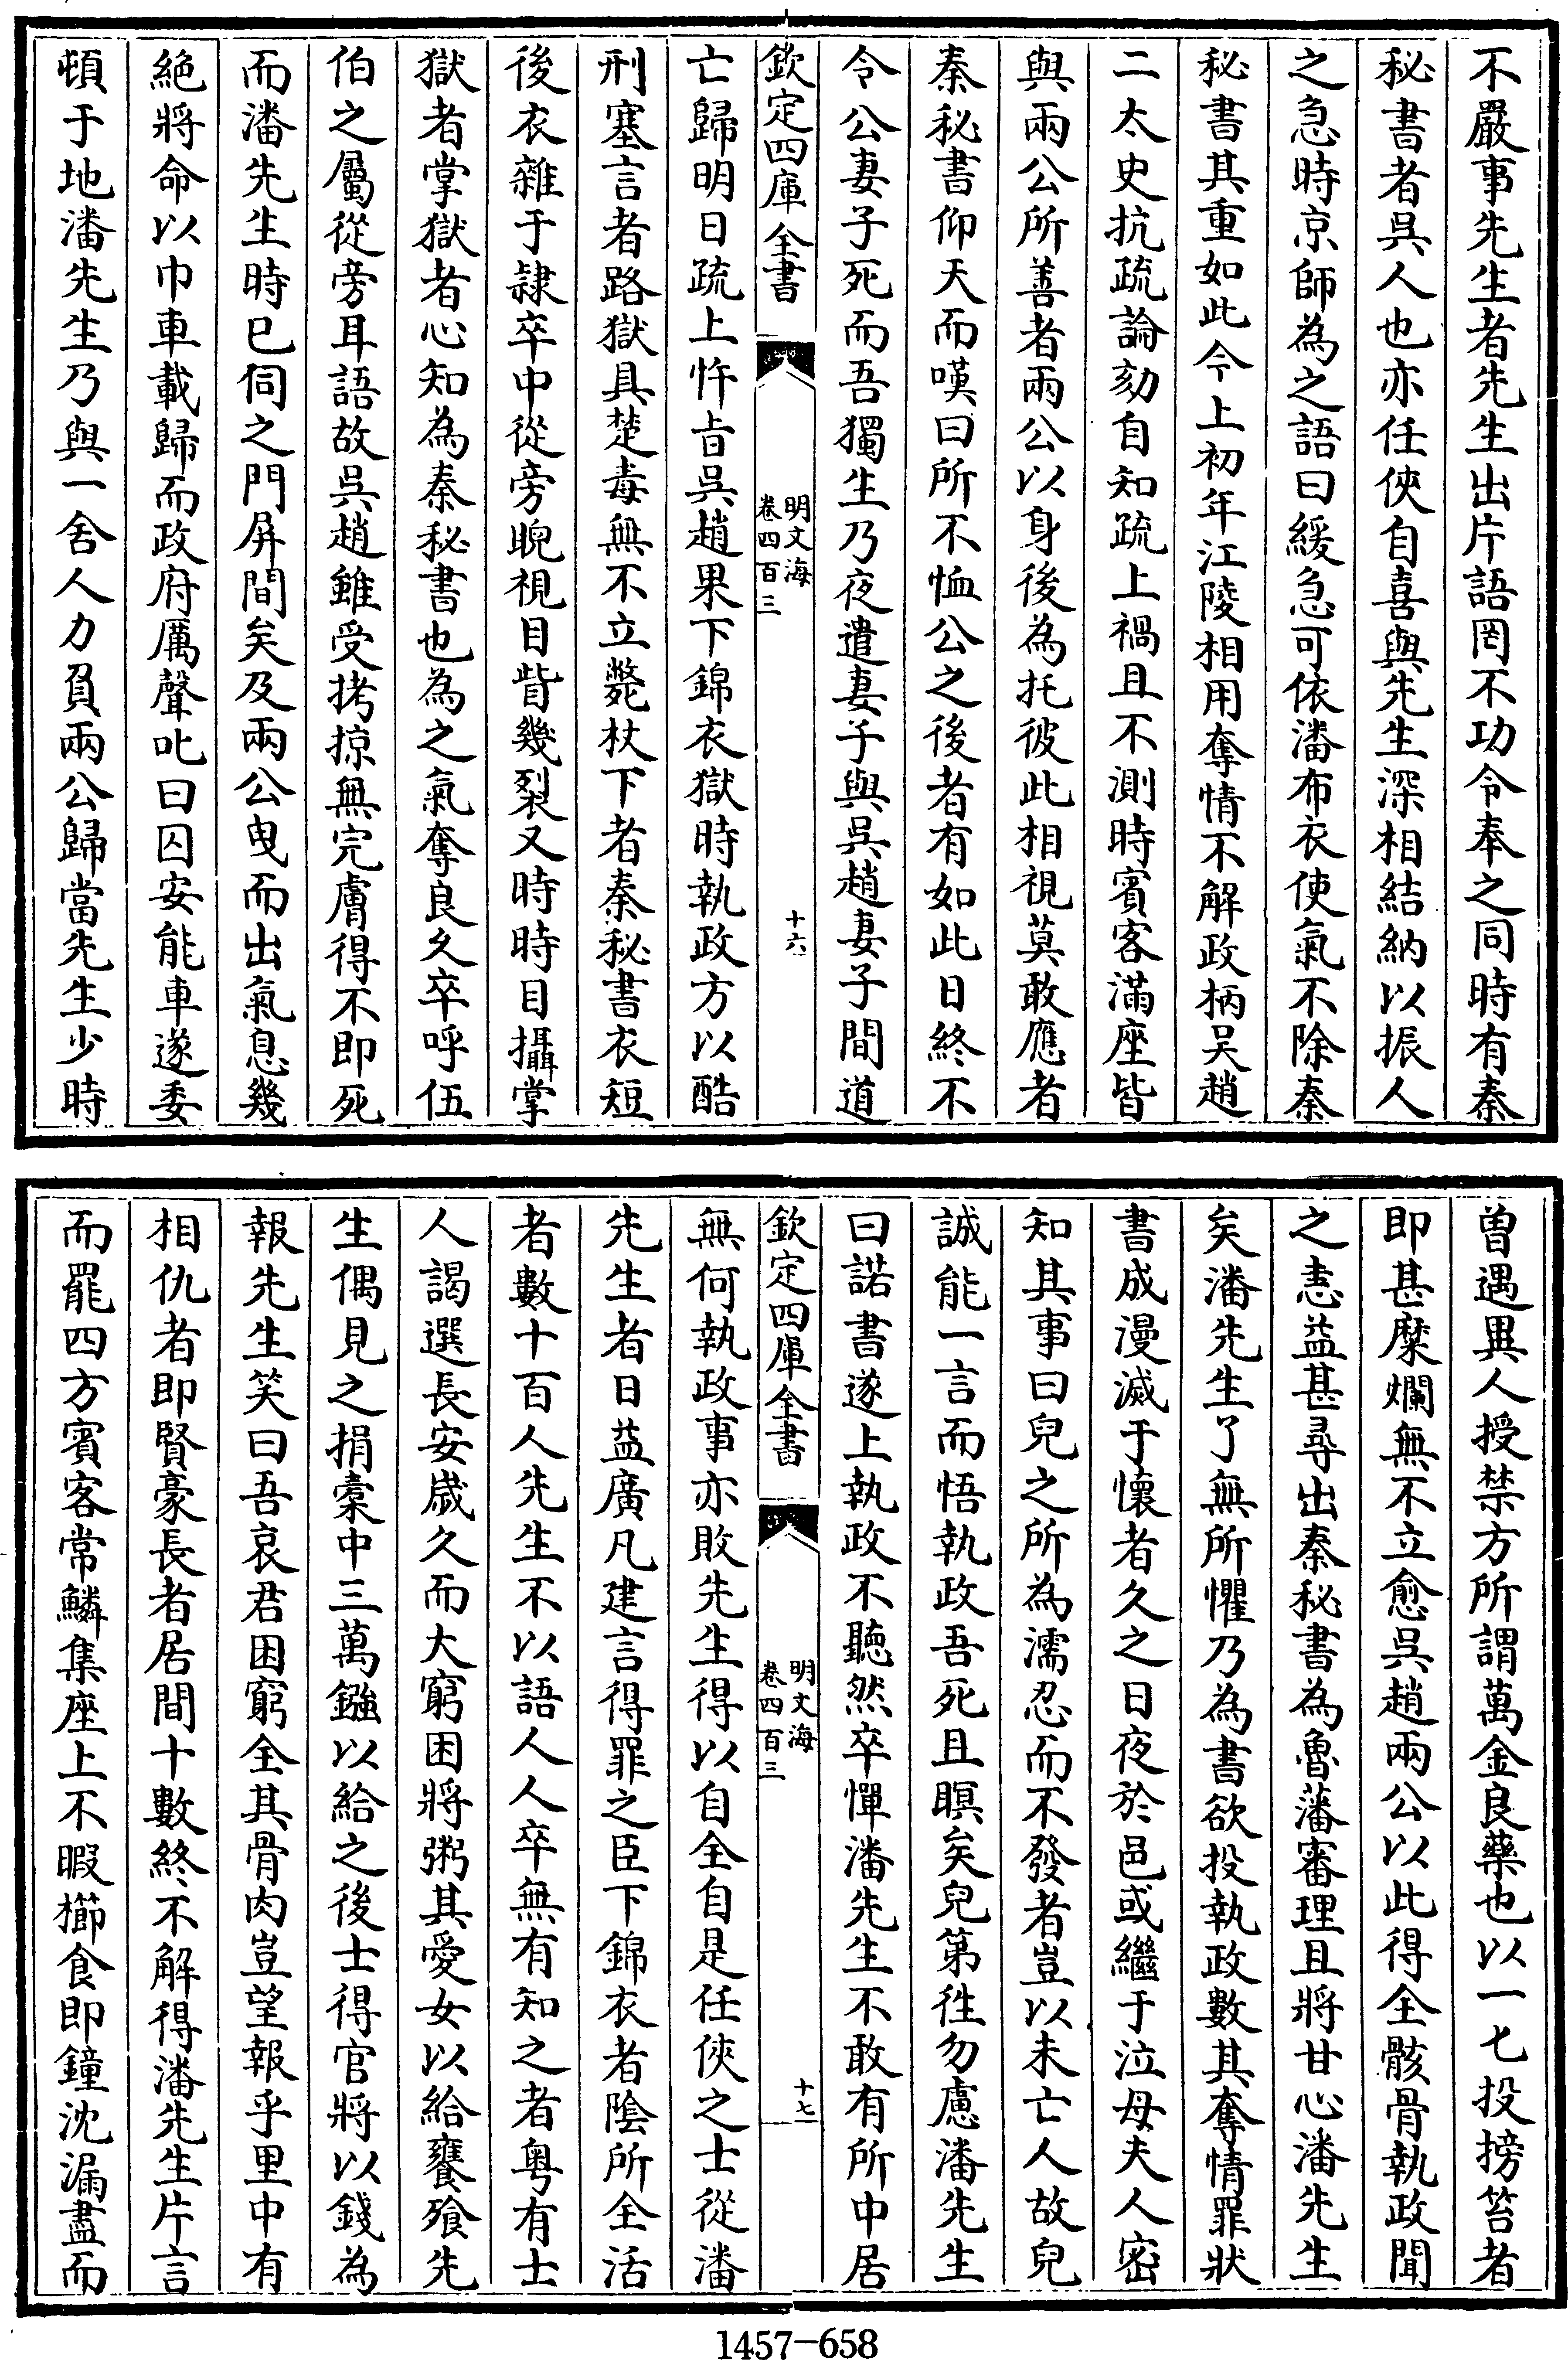 不嚴事先生者先生出片語罔不功令奉之同時有秦
秘書者吳人也亦任俠自喜與先生深相結納以振人
之急時京師為之語曰緩急可依潘布衣使氣不除秦
秘書其重如此今上初年江陵相用奪情不解政柄吳趙
二太史抗疏論劾自知疏上禍且不測時賓客滿座皆
與兩公所善者兩公以身後為托彼此相視莫敢應者
秦秘書仰天而嘆曰所不恤公之後者有如此日終不
令公妻子死而吾獨生乃夜遣妻子與吳趙妻子間道
欽定四庫全書
明文海
卷四百三
十六
亡歸明日疏上忤旨吳趙果下錦衣獄時執政方以酷
刑塞言者路獄具楚毒無不立斃杖下者秦秘書衣短
後衣雜于隷卒中從旁睨視目眥幾裂又時時目攝掌
獄者掌獄者心知為秦秘書也為之氣奪良久卒呼伍
伯之屬從旁耳語故吳趙雖受拷掠無完膚得不即死
而潘先生時已伺之門屏間矣及兩公曳而出氣息幾
絕將命以巾車載歸而政府厲聲叱曰囚安能車遂委
頓于地潘先生乃與一舍人力負兩公歸當先生少時
曽遇異人授禁方所謂萬金良藥也以一七投搒笞者
即甚糜爛無不立愈吳趙兩公以此得全骸骨執政聞
之恚益甚尋出秦秘書為魯藩審理且將甘心潘先生
矣潘先生了無所懼乃為書欲投執政數其奪情罪狀
書成漫滅于懷者久之日夜於邑或繼于泣母夫人密
知其事曰兒之所為濡忍而不發者豈以未亡人故兒
誠能一言而悟執政吾死且瞑矣兒第徃勿慮潘先生
曰諾書遂上執政不聽然卒憚潘先生不敢有所中居
欽定四庫全書
明文海
卷四百三
十七
無何執政事亦敗先生得以自全自是任俠之士從潘
先生者日益廣凡建言得罪之臣下錦衣者陰所全活
者數十百人先生不以語人人卒無有知之者粤有士
人謁選長安歲久而大窮困將粥其愛女以給饔飱先
生偶見之捐槖中三萬鏹以給之後士得官將以錢為
報先生笑曰吾哀君困窮全其骨肉豈望報乎里中有
相仇者即賢豪長者居間十數終不解得潘先生片言
而罷四方賓客常鱗集座上不暇櫛食即鐘沈漏盡而
1457-658